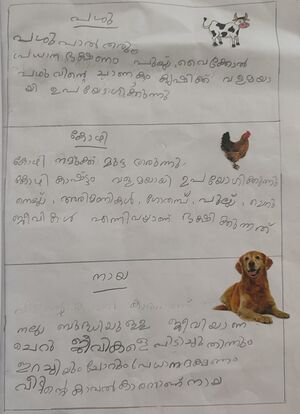 പശു
പശു പാൽ തരും
പ്രധാന ഭക്ഷണം പുല്ല്, വൈക്കോൽ
പശുവിന്റെ ചാണകം കൃഷിക്ക് വളമായ
യി ഉപയോഗിക്കുന്നു
കോഴി
കോഴി നമുക്ക് മുട്ട തരുന്നു.
കോഴി കാഷ്ടം വളമായി ഉപയോഗിക്കുന്നു
നെല്ല്, അരിമണികൾ, ഗോതമ്പ്, പുല്ല്, ചെറു
ജീവികൾ എന്നിവയാണ് ഭക്ഷിക്കുന്നത്
നായ
നല്ല ബുദ്ധിയുള്ള ജീവിയാണ്
ചെറു ജീവികളെ പിടിച്ചു തിന്നും
ഇറച്ചിയും ചോറും പ്രധാന ഭക്ഷണം
വീട്ടിന്റെ കാവൽ കാരനാണ് നായ